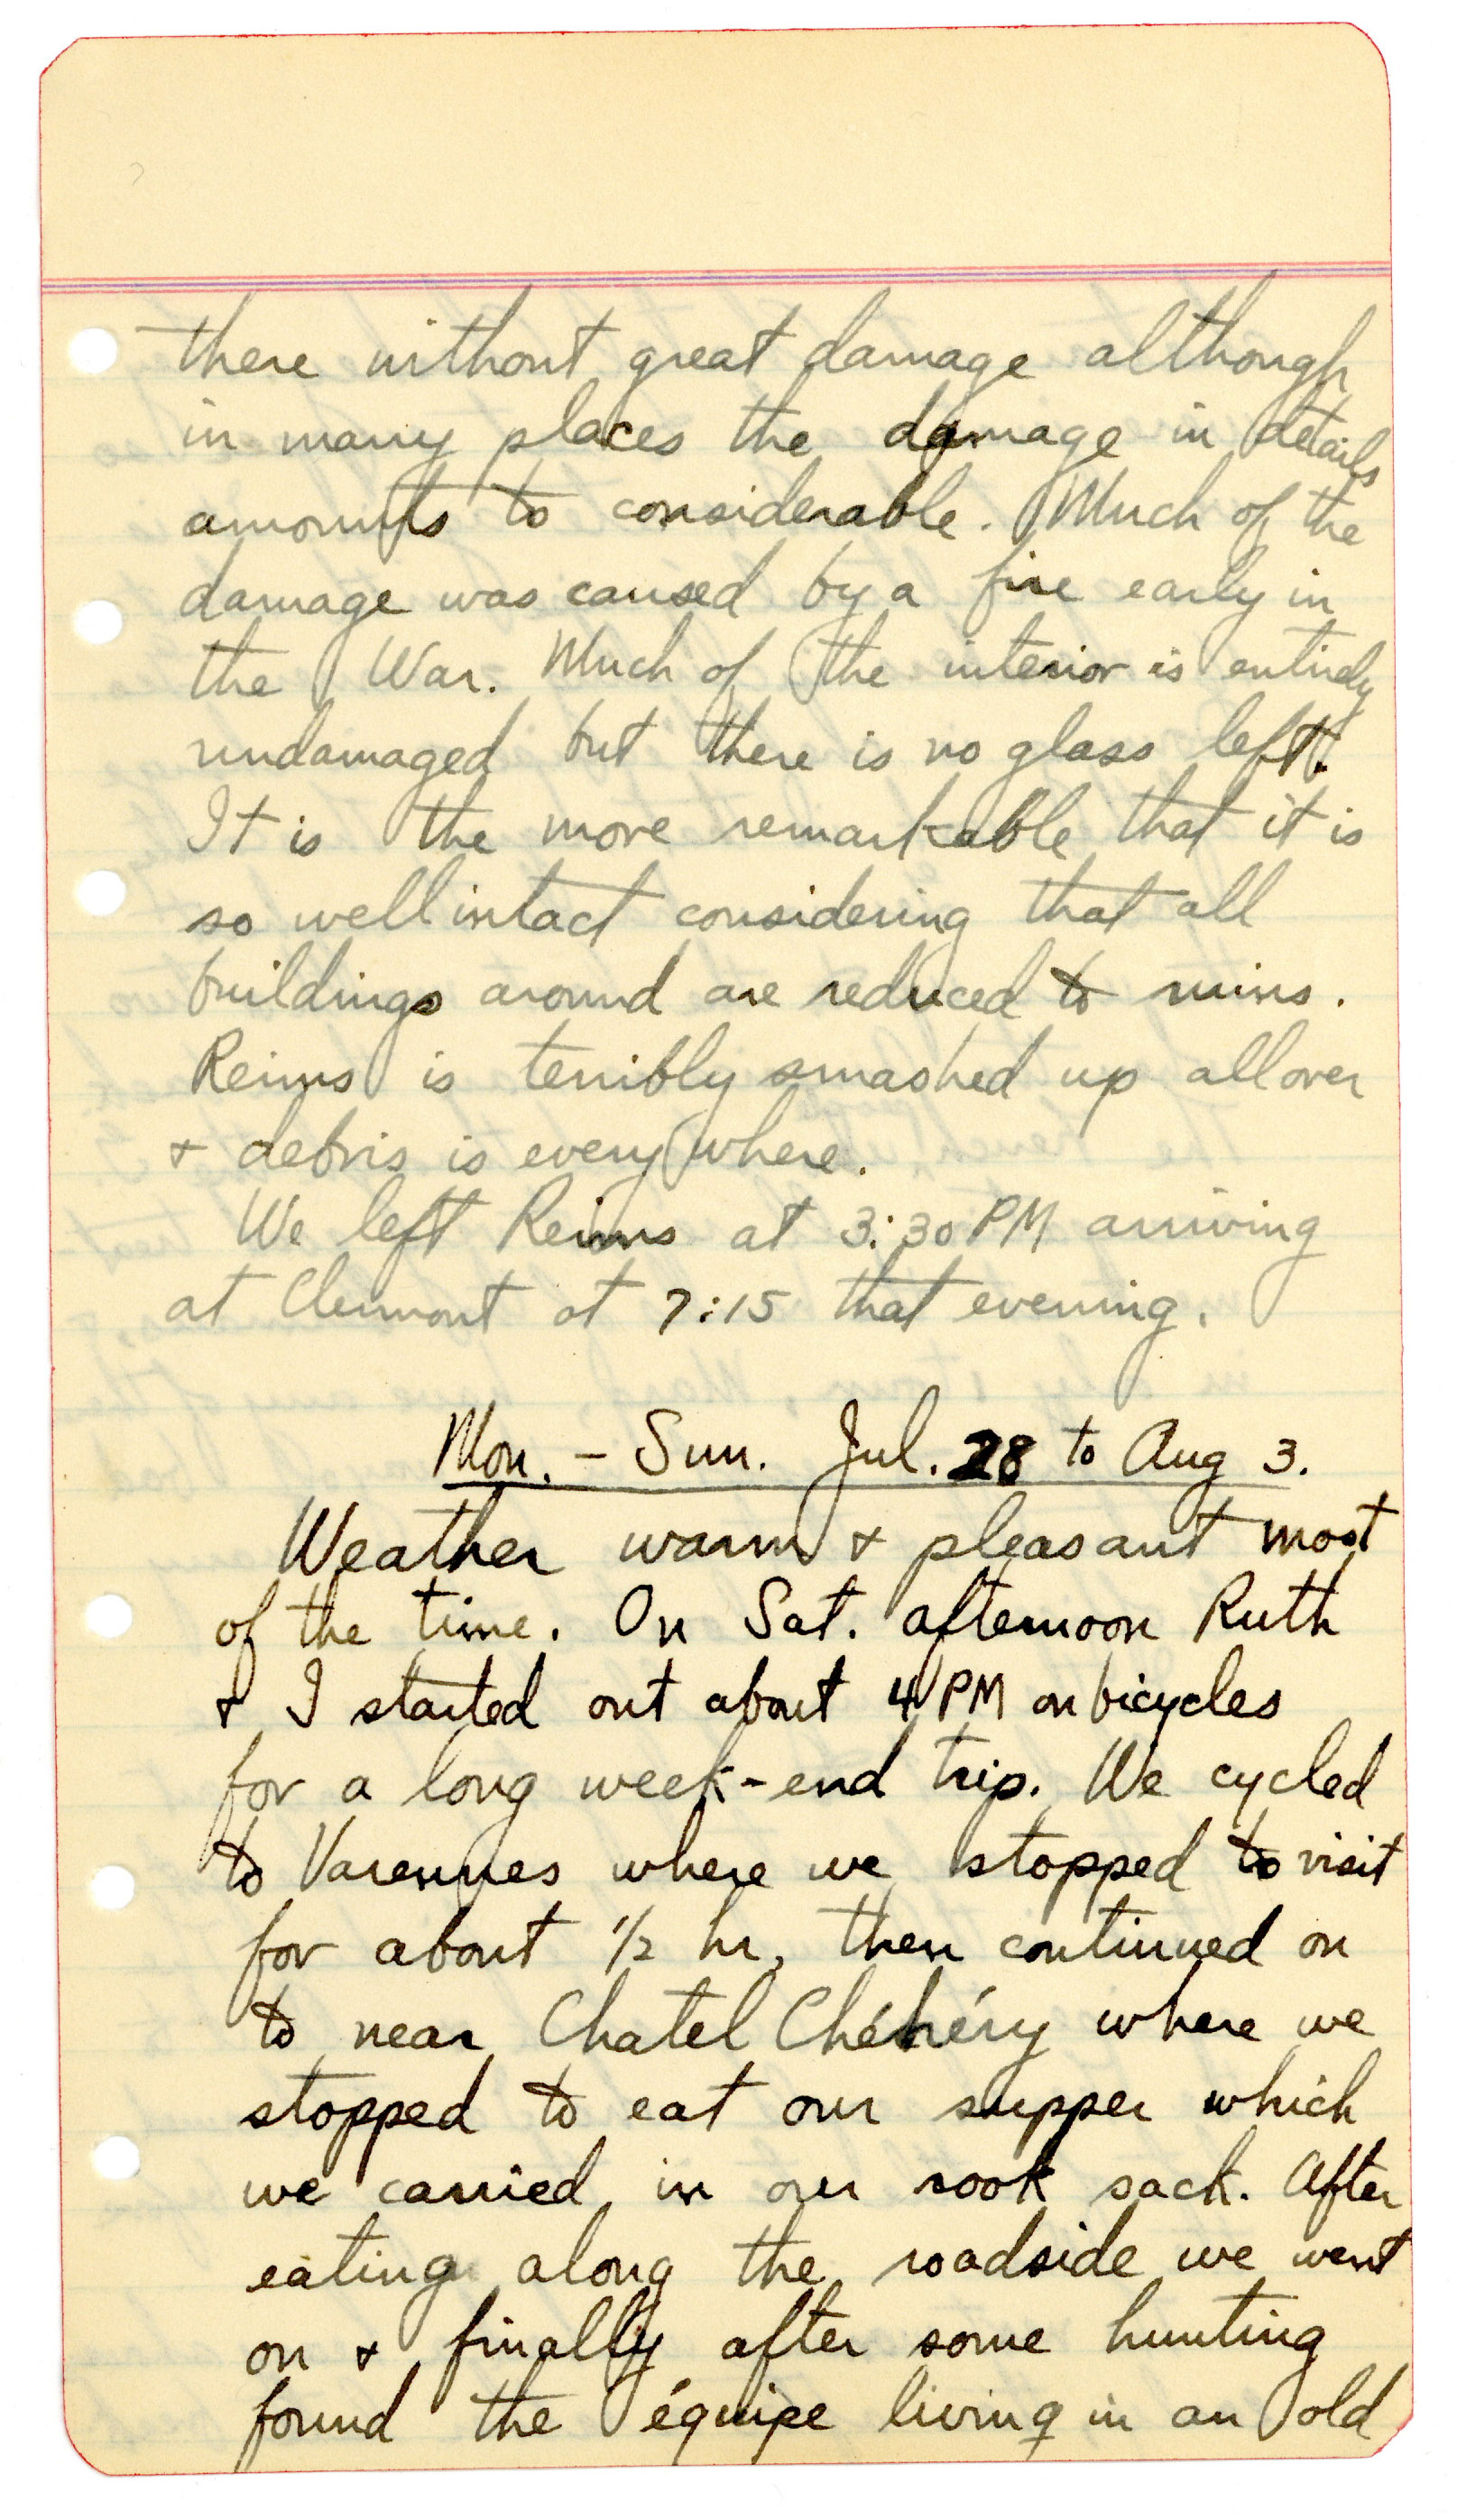 there without great damage although
in many places the damage in details
amounts to considerable. Much of the
damage was caused by a fire early in
the War. Much of the interior is entirely
undamaged but there is no glass left.
It is the more remarkable that it is
so well intact considering that all
buildings around are reduced to ruins.
Reims is terribly smashed up all over
& debris is everywhere.
We left Reims at 3:30 PM arriving
at Clermont at 7:15 that evening.
Mon. - Sun. Jul. 28 to Aug 3.
Weather warm & pleasant most
of the time. On Sat. afternoon Ruth
& I started out about 4 PM on bicycles
for a long week-end trip. We cycled
to Varennes where we stopped to visit
for about 1/2 hr, then continued on
to near Chatel Chéhéry where we
stopped to eat our supper which
we carried in our rook sack. After
eating along the roadside we went
on & finally after some hunting
found the équipe living in an old